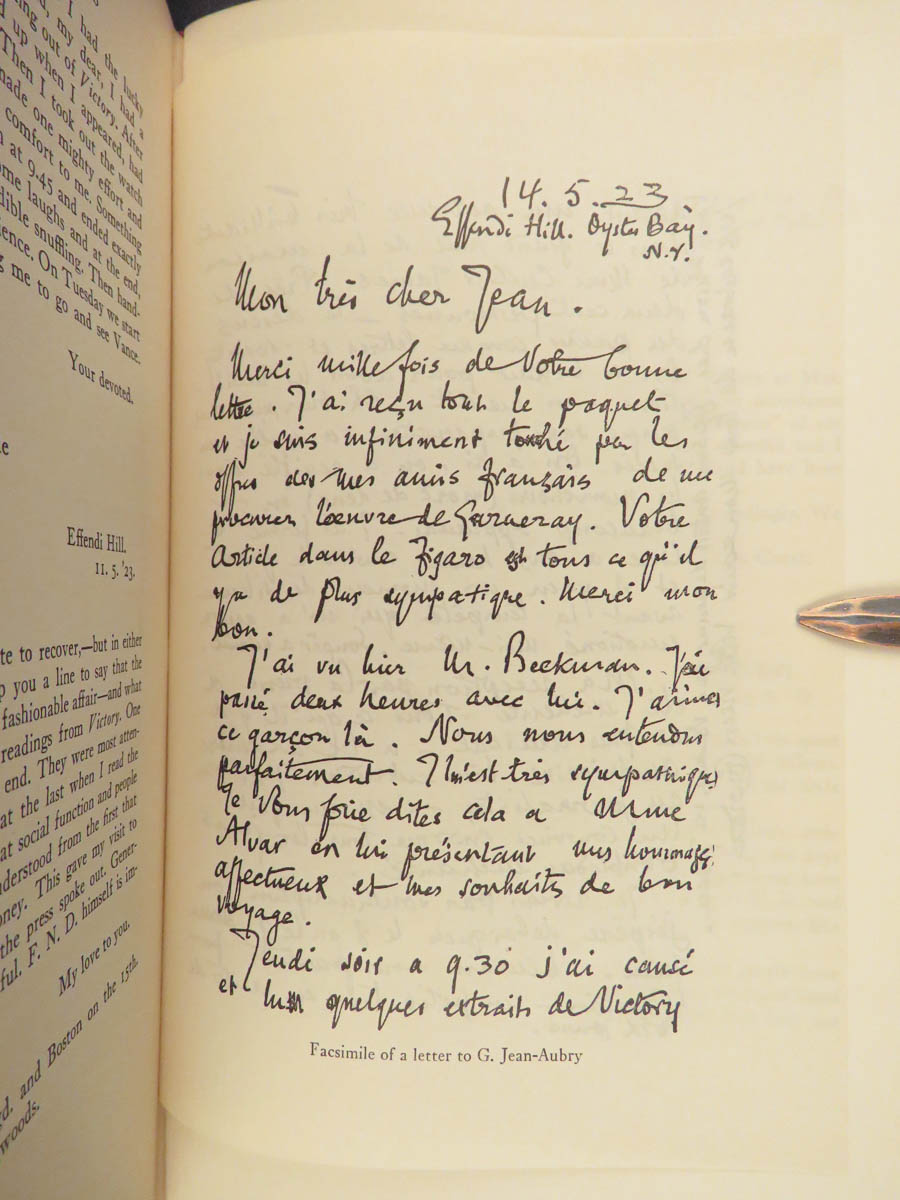 I had the lucky
my dear, I had a
ing out of Victory. After
d up when I appeared, had
Then I took out the watch
made one mighty effort and
comfort to me. Something
n at 9.45 and ended exactly
ome laughs and at the end,
dible snuffling. Then hand-
ience. On Tuesday we start
g me to go and see Vance.
Your devoted.
e
Effendi Hill.
11. 5. '23.
te to recover,—but in either
p you a line to say that the
fashionable affair—and what
readings from Victory. One
end. They were most atten-
at the last when I read the
at social function and people
nderstood from the first that
oney. This gave my visit to
the press spoke out. Gener-
ful. F. N. D. himself is im-
My love to you.
d. and Boston on the 15th.
woods.
14. 5. 23
Effendi Hill. Oyster Bay.
N.Y.
Mon très cher Jean.
Merci mille fois de Votre bonne
lettre. J'ai reçu tout le paquet
et je suis infiniment touché par les
offres des mes amis français de me
procurer l'œuvre de Garneray. Votre
Article dans le Figaro est tous ce qu'il
y a de plus sympatique. Merci mon
bon.
J'ai vu hier Mr. Beekman. J'ai
passé deux heures avec lui. J'aimes
ce garçon là. Nous nous entendns
parfaitement. Il m'est très sympathique
Je Vous prie dites cela a Mme
Alvar en lui présentant mes hommages
affectueux et mes souhaits de bon
voyage.
Jeudi soir a 9.30 j'ai causé
et lu quelques extraits de Victory
Facsimile of a letter to G. Jean-Aubry